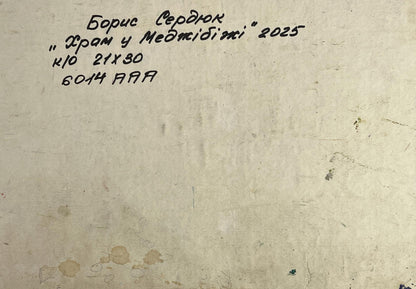 Борис Сердюк
„Храм у Меджібіжі" 2025
к/о 21х30
6014 ААА